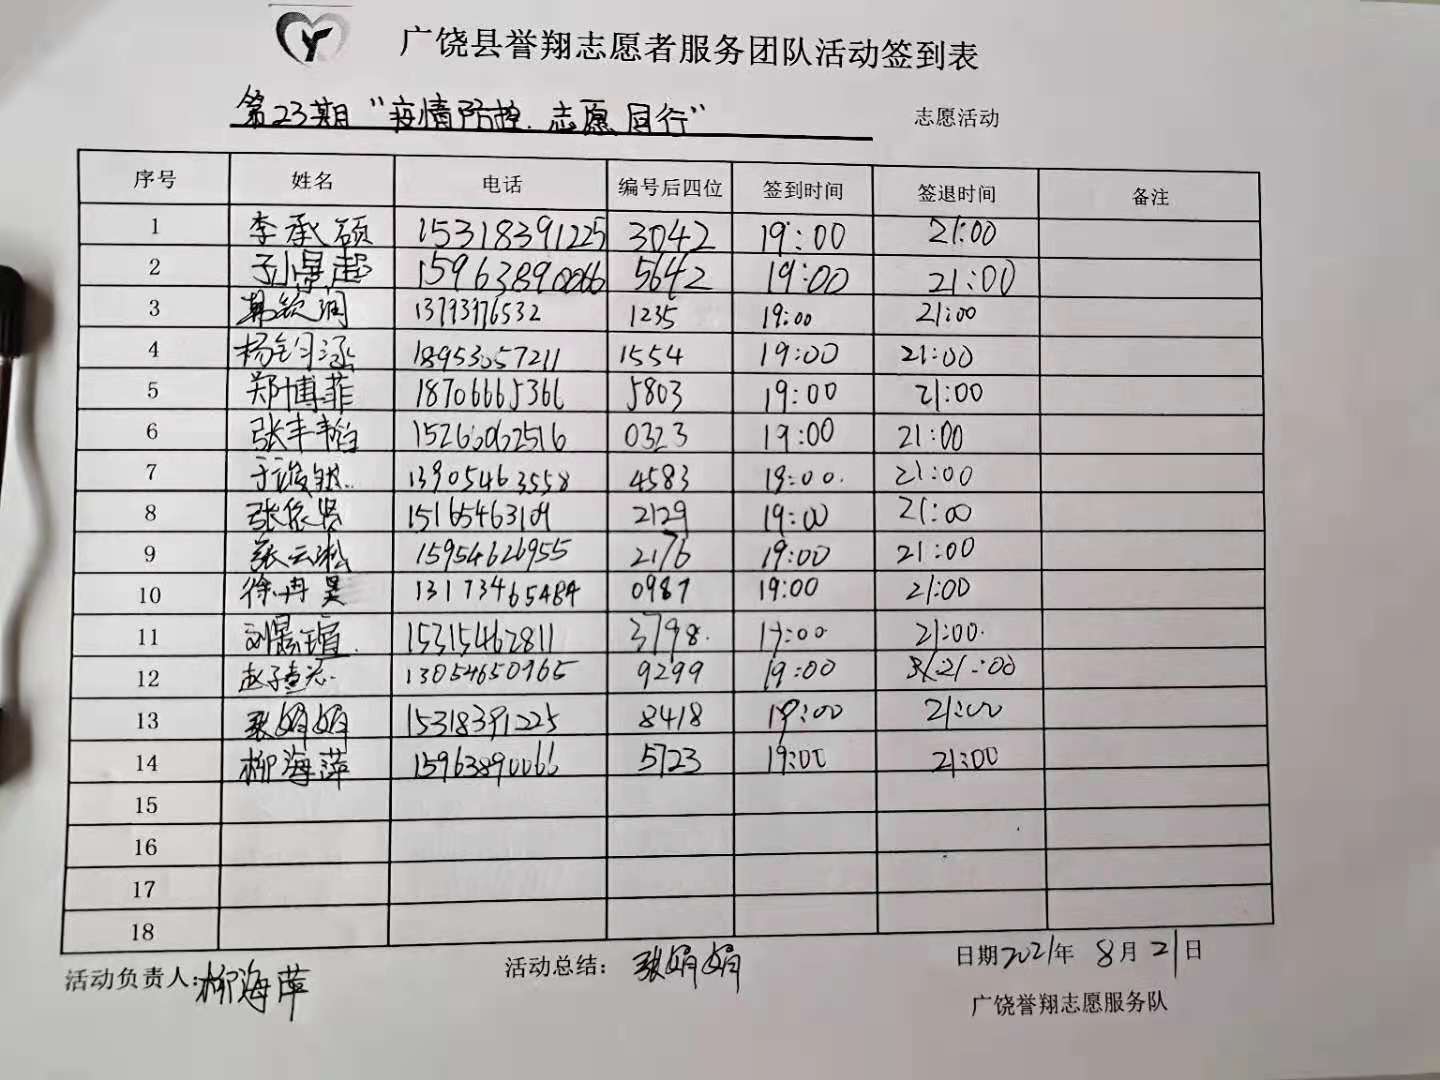 广饶县誉翔志愿者服务团队活动签到表
第23期“疫情防控.志愿同行” 志愿活动
序号 姓名 电话 编号后四位 签到时间 签退时间 备注
1 李承硕 15318391225 3042 19:00 21:00
2 15963890066 5642 19:00 21:00
3 韩钦润 13793976532 1235 19:00 21:00
4 杨钧涵 18953057211 1554 19:00 21:00
5 郑博菲 18706665366 5803 19:00 21:00
6 张丰韬 15266062516 0323 19:00 21:00
7 13905463558 4583 19:00. 21:00
8 张依贤 15165463109 2129 19:00 21:00
9 张云淞 15954626955 2176 19:00 21:00
10 徐冉昊 13173465484 0987 19:00 21:00
11 刘景瑄. 15315462811 3798. 19:00 21:00.
12 13054650965 9299 19:00 21:00
13 张娟娟 15318391225 8418 19:00 21:00
14 柳海萍 15963890066 5723 19:00 21:00
15
16
17
18
活动负责人:柳海萍 活动总结: 张娟娟 日期2021年 8月21日
广饶誉翔志愿服务队